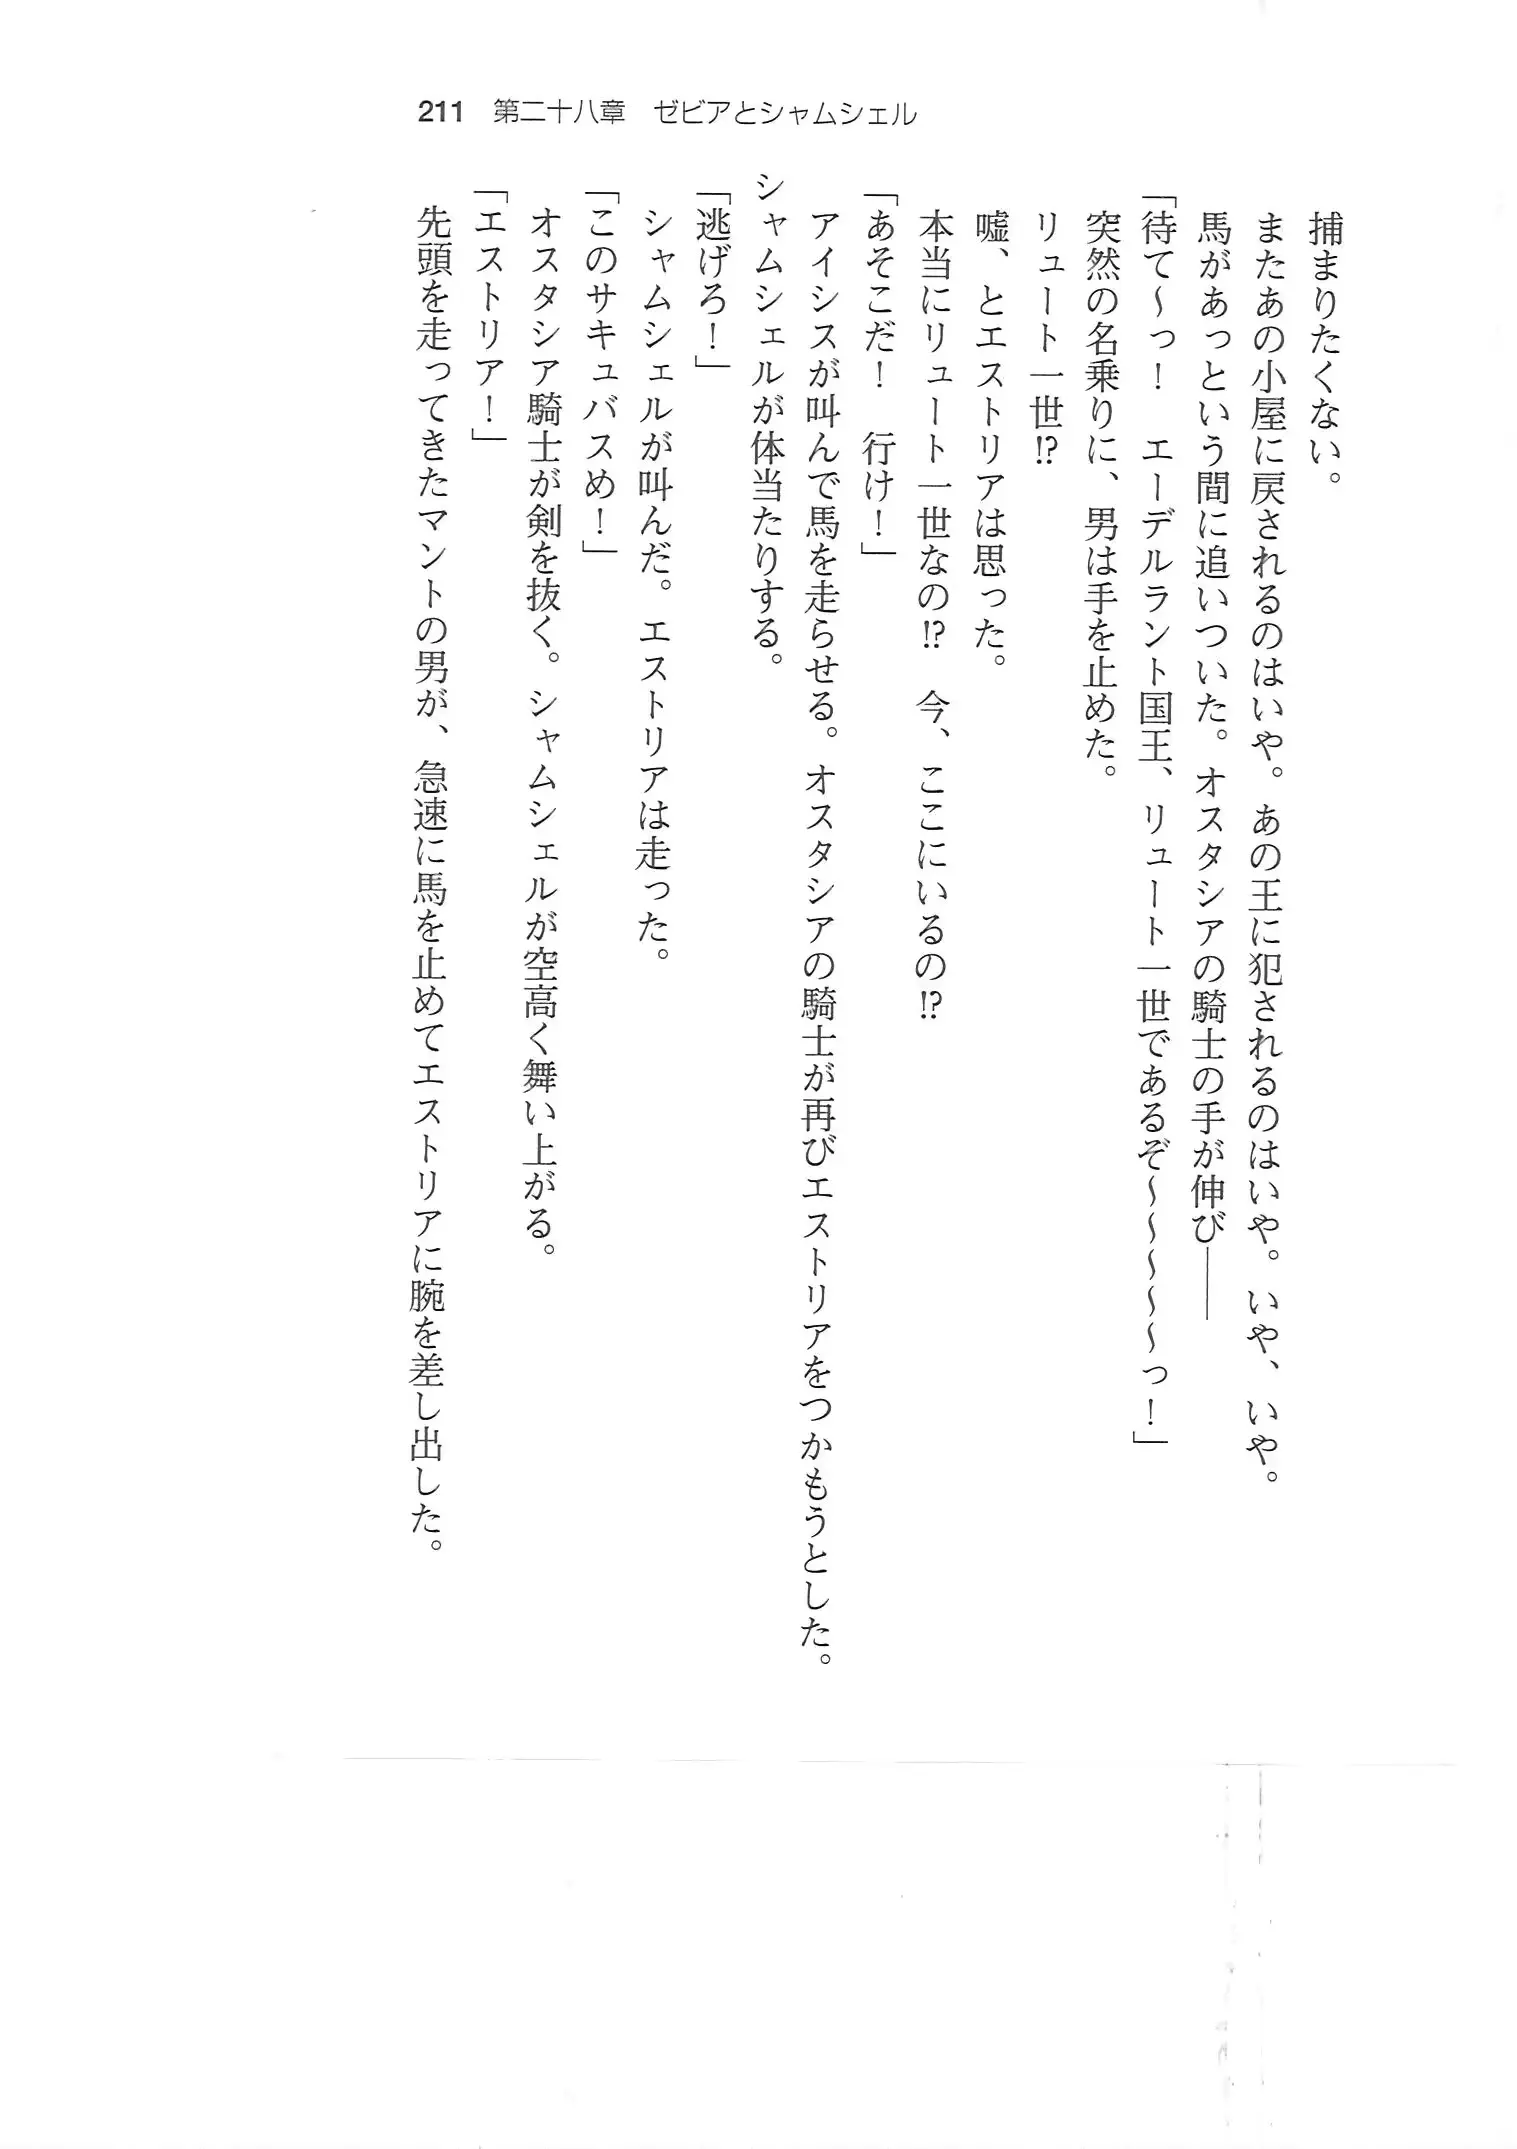 211　第二十八章　ゼビアとシャムシェル
捕まりたくない。
またあの小屋に戻されるのはいや。あの王に犯されるのはいや。いや、いや。
馬があっという間に追いついた。オスタシアの騎士の手が伸び――
「待て～っ！　エーデルラント国王、リュート一世であるぞ～～～～～っ！」
突然の名乗りに、男は手を止めた。
リュート一世⁉
嘘、とエストリアは思った。
本当にリュート一世なの⁉　今、ここにいるの⁉
「あそこだ！　行け！」
アイシスが叫んで馬を走らせる。オスタシアの騎士が再びエストリアをつかもうとした。
シャムシェルが体当たりする。
「逃げろ！」
シャムシェルが叫んだ。エストリアは走った。
「このサキュバスめ！」
オスタシア騎士が剣を抜く。シャムシェルが空高く舞い上がる。
「エストリア！」
先頭を走ってきたマントの男が、急速に馬を止めてエストリアに腕を差し出した。